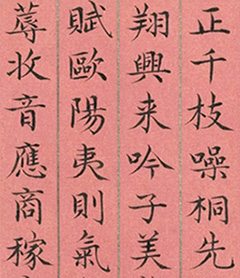 正千枝噪桐先
翔興来吟子美
賦歐陽夷則氣
蓐收音應商稼